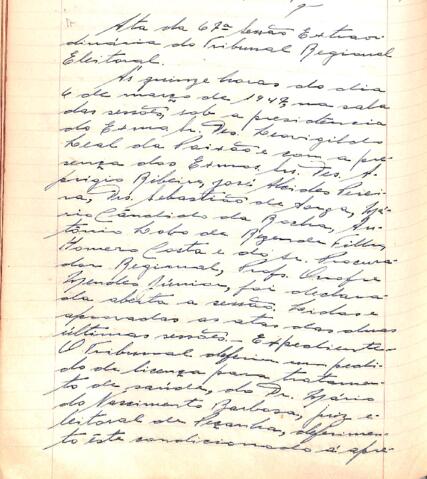 Ata da 67ª Sessão Extraor
dinária do Tribunal Regional
Eleitoral.
Ás quinze horas do dia
6 de março de 1947, na sala
das sessões, sob a presidência
do Exmo. Sr. Des. Leovigildo
Leal da Paixão e com a pre-
sença dos Exmos. Srs. Des. A-
prigio Ribeiro, José Alcides Perei-
ra, Drs. Sebastião de Souza, Má-
rio Cândido da Rocha, An-
tônio Lobo de Rezende Filho,
Homero Costa e do Sr. Procura-
dor Regional, Prof. Onofre
Mendes Júnior, foi declara-
da aberta a sessão. Lidas e
aprovadas as atas das duas
últimas sessões. Expediente:
O Tribunal deferiu um pedi-
do de licença para tratamen-
to de saúde, do Dr. Mário
do Nascimento Barbosa, juiz e-
leitoral de Peçanha, deferimen-
to este condicionado á apre-